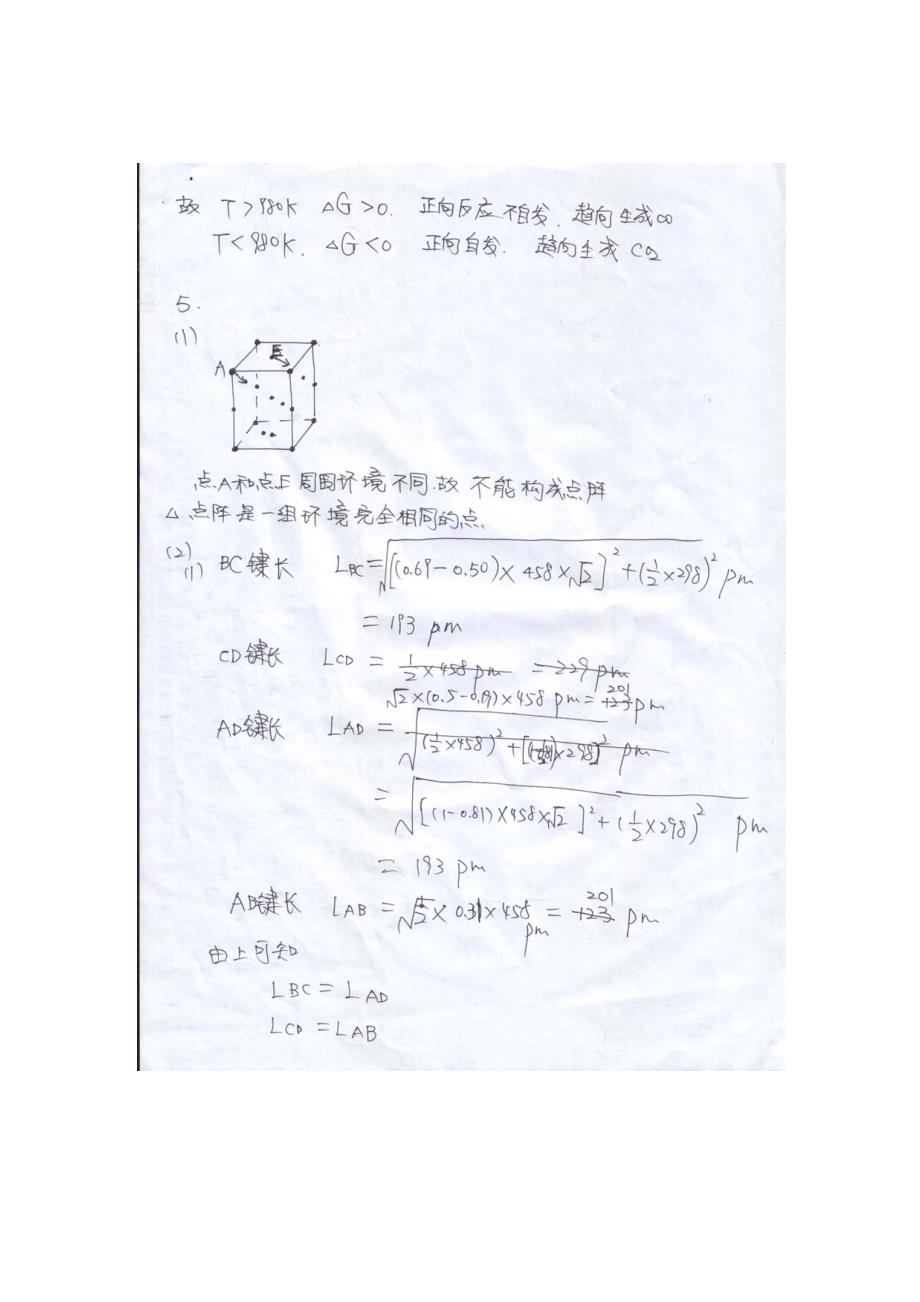 故 T>980K △G>0. 正向反应不自发. 趋向生成CO
T<980K. △G<0 正向自发. 趋向生成 CO2
5.
(1)
E
A
点A和点E周围环境不同.故 不能构成点阵
△ 点阵是一组环境完全相同的点.
(2)
(1) BC键长 LBC=√[(0.69-0.50)×458×√2]²+(½×298)² pm
= 193 pm
CD键长 LCD = ½×458pm =229pm
√2×(0.5-0.19)×458 pm = 201 pm
AD键长 LAD = √(½×458)²+[×298]² pm
= √[(1-0.81)×458×√2]²+(½×298)² pm
= 193 pm
AB键长 LAB = √2×0.31×458 pm = 201 pm
由上可知
LBC = LAD
LCD = LAB